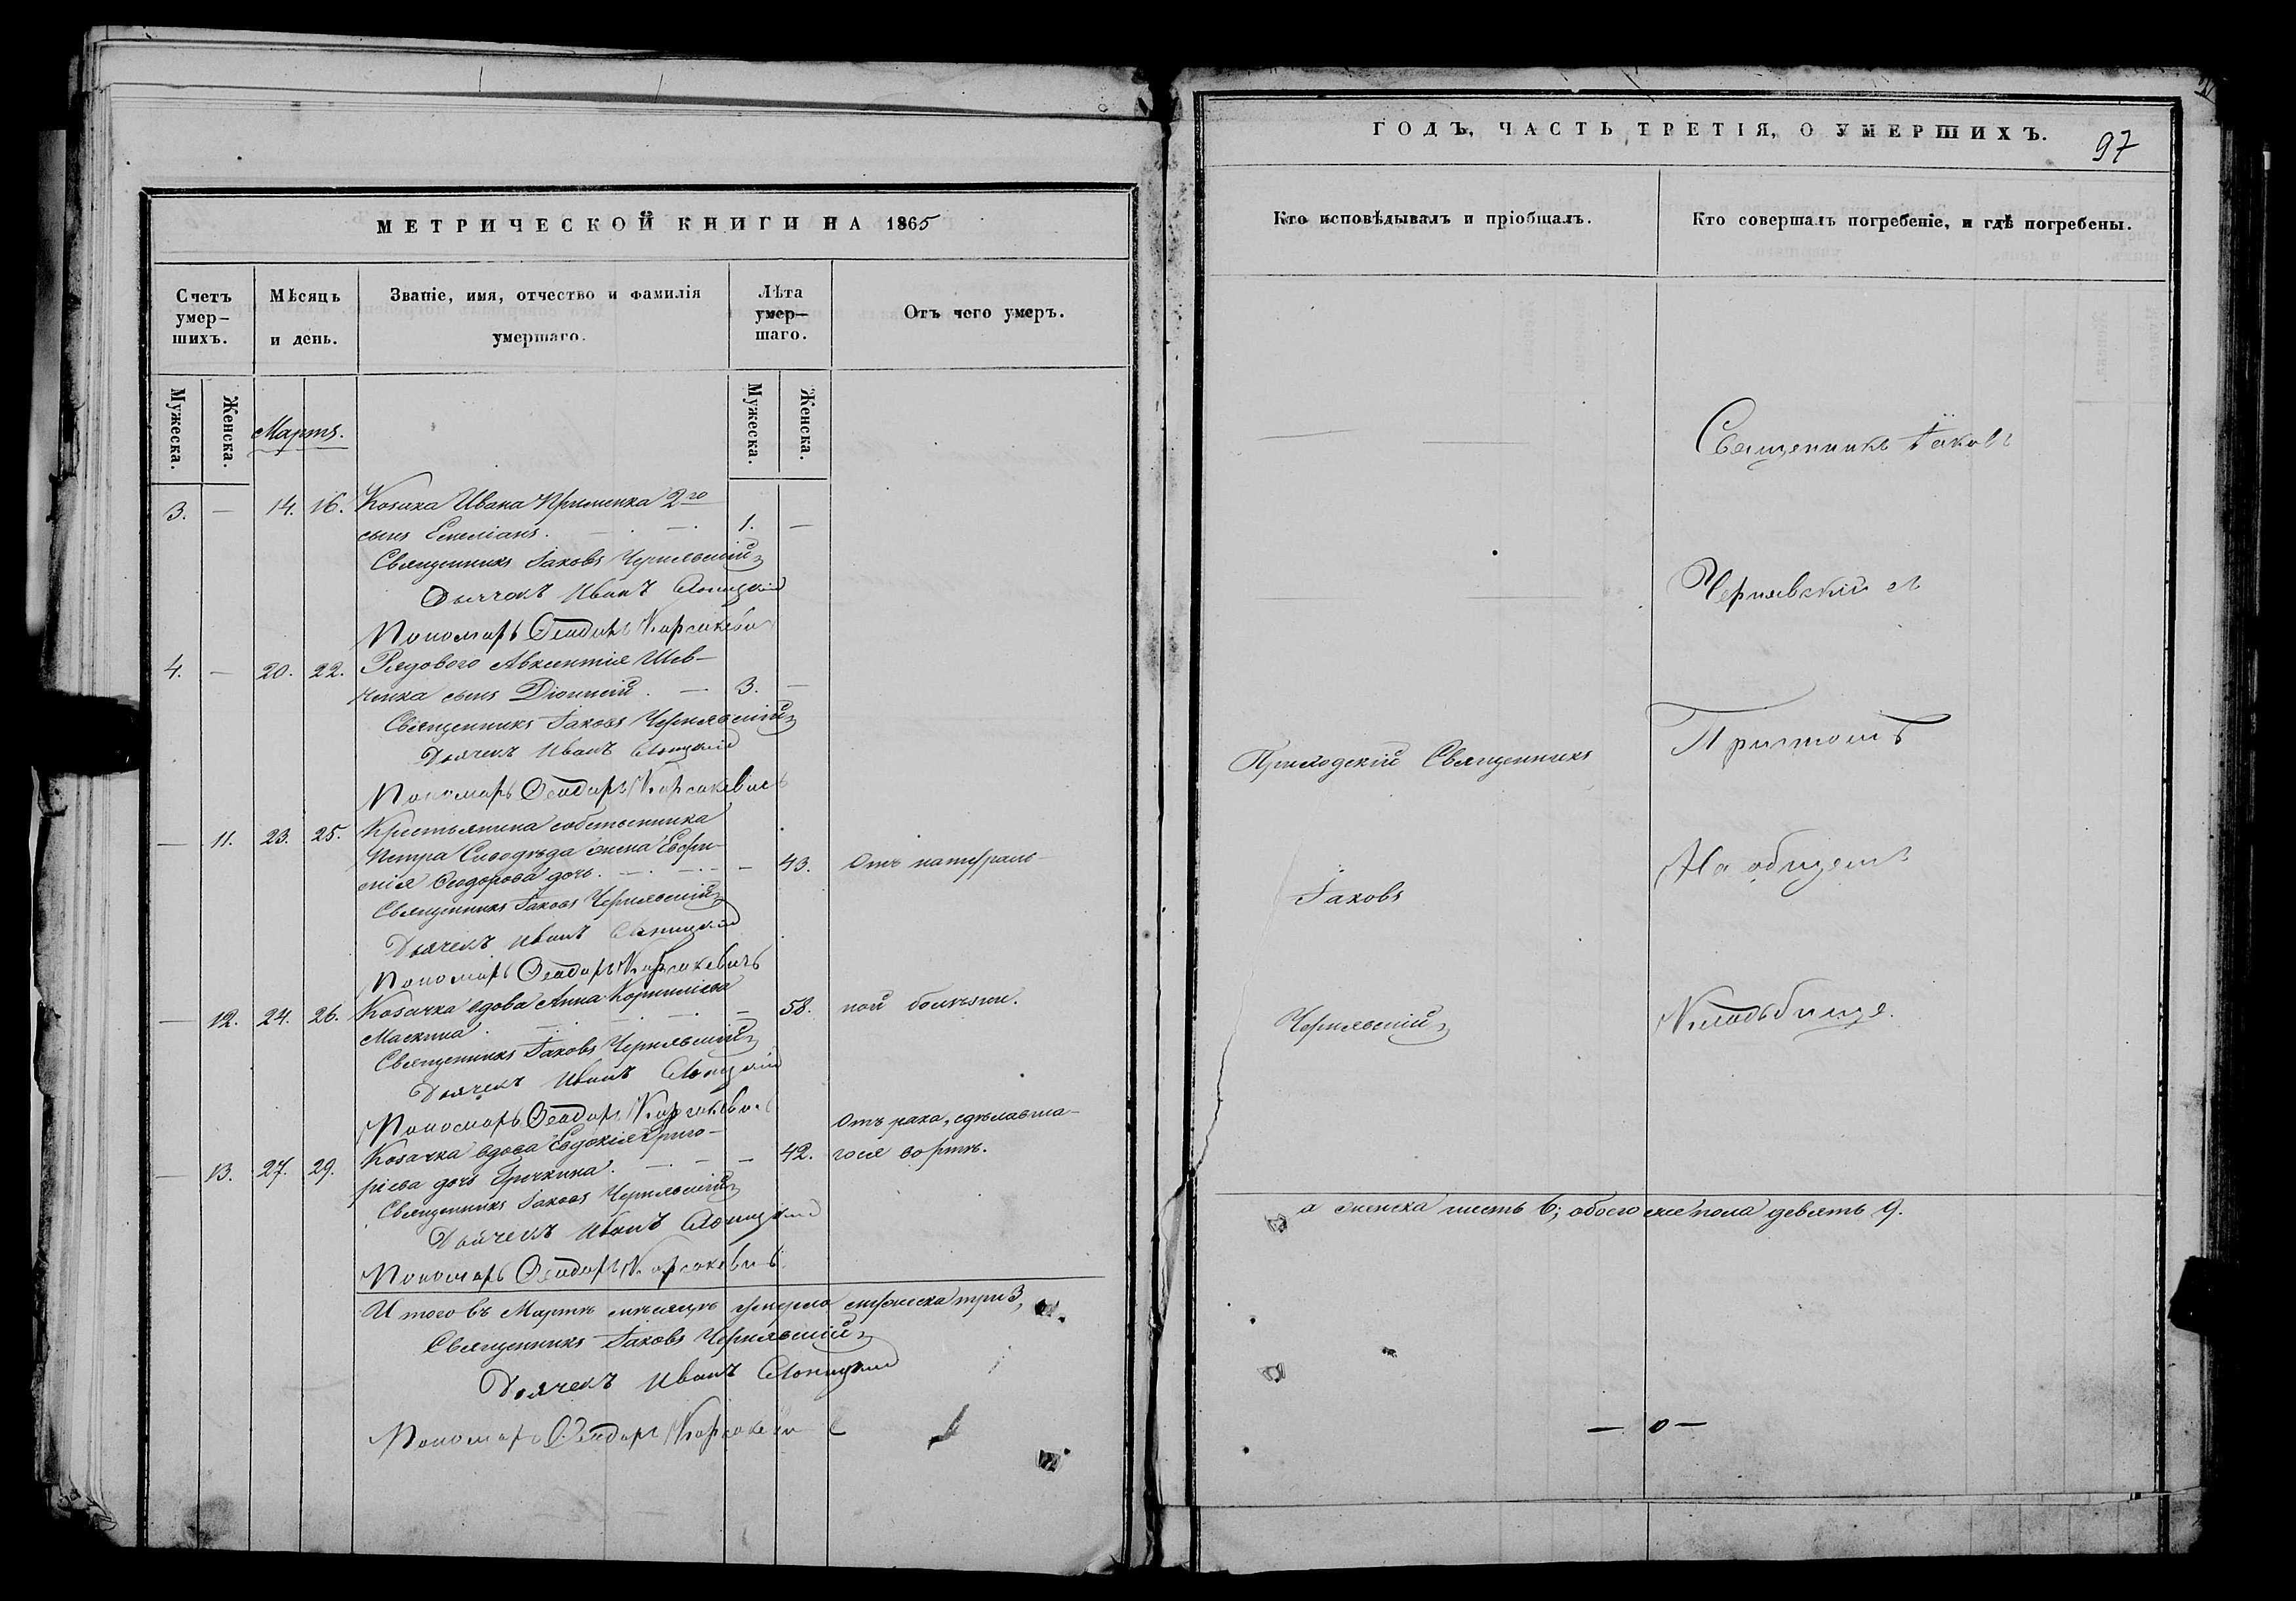 МЕТРИЧЕСКОЙ КНИГИ НА 1865
Счетъ умер-шихъ.
Мѣсяцъ и день.
Званіе, имя, отчество и фамилія умершаго.
Лѣта умер-шаго.
Отъ чего умеръ.
Мужеска.
Женска.
Мужеска.
Женска.
Мартъ.
3. — 14. 16. Козака Ивана 2го
сынъ Емеліанъ. — 1. —
Священникъ Іаковъ Чернявскій
Дьячекъ Иванъ
Пономарь Ѳеодоръ Корсакевичъ
4. — 20. 22. Рядового Авксентія Шев-
ченка сынъ Діонисій. — 3. —
Священникъ Іаковъ Чернявскій
Дьячекъ Иванъ
Пономарь Ѳеодоръ Корсакевичъ
— 11. 23. 25. Крестьянина собственника
Петра Сиводѣда жена Евфи-
мія Ѳеодорова дочь. — — — 43. Отъ натураль-
Священникъ Іаковъ Чернявскій
Дьячекъ Иванъ
Пономарь Ѳеодоръ Корсакевичъ
— 12. 24. 26. Козачка вдова Анна Корниліева — 58. ной болѣзни.
Священникъ Іаковъ Чернявскій
Дьячекъ Иванъ
Пономарь Ѳеодоръ Корсакевичъ
Отъ рака, сдѣлавша-
— 13. 27. 29. Козачка вдова Евдокія Григо- — 42. гося во ртѣ.
ріева дочь Гричкина. — —
Священникъ Іаковъ Чернявскій
Дьячекъ Иванъ
Пономарь Ѳеодоръ Корсакевичъ
Итого въ Мартѣ мѣсяцѣ умерло мужеска три 3,
Священникъ Іаковъ Чернявскій
Дьячекъ Иванъ
Пономарь Ѳеодоръ Корсакевичъ
ГОДЪ, ЧАСТЬ ТРЕТІЯ, О УМЕРШИХЪ.
97
Кто исповѣдывалъ и пріобщалъ.
Кто совершалъ погребеніе, и гдѣ погребены.
Священникъ Іаковъ
Чернявскій съ
Приходскій Священникъ
Причтомъ
Іаковъ
На общемъ
Чернявскій
Кладьбище.
а женска шесть 6; обоего же пола девять 9.
— 0 —